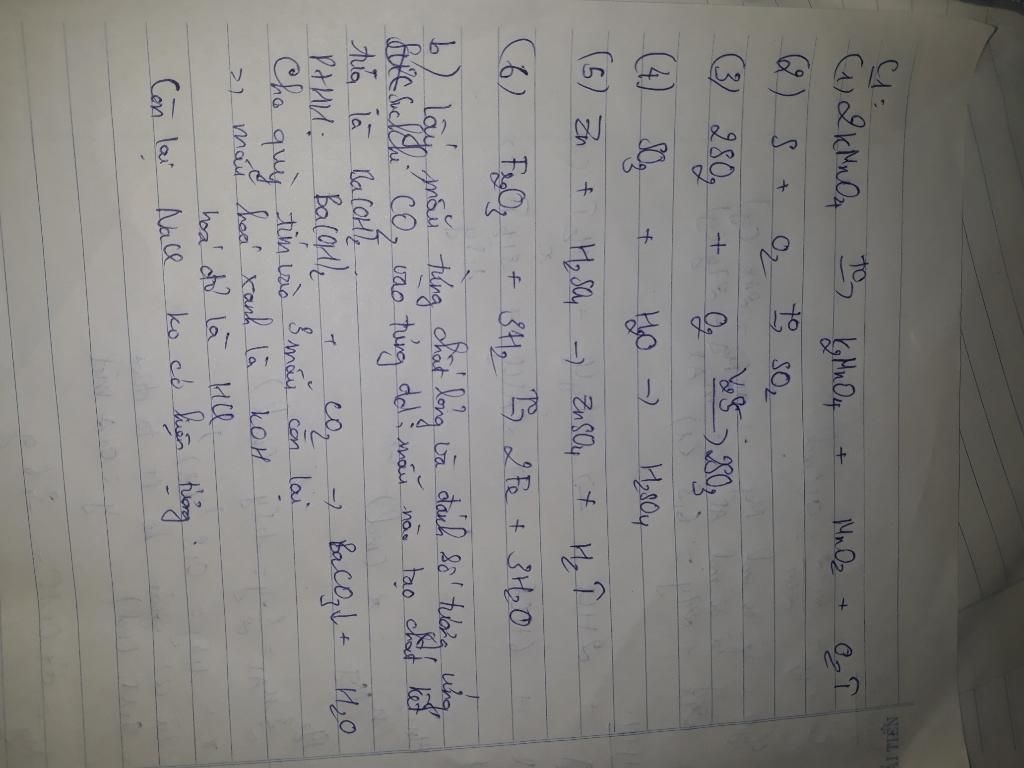 C1:
(1) 2KMnO4 to→ K2MnO4 + MnO2 + O2↑
(2) S + O2 to→ SO2
(3) 2SO2 + O2 → 2SO3
(4) SO3 + H2O → H2SO4
(5) Zn + H2SO4 → ZnSO4 + H2↑
(6) Fe2O3 + 3H2 to→ 2Fe + 3H2O
b) Lấy mẫu từng chất lỏng và đánh số tương ứng
CO2 vào từng dd, mẫu nào tạo chất kết
tủa là Ba(OH)2
PTHH: Ba(OH)2 + CO2 → BaCO3↓ + H2O
Cho quỳ tím vào 3 mẫu còn lại
=> mẫu hoá xanh là KOH
hoá đỏ là HCl
Còn lại NaCl ko có hiện tượng
ẢI TIẾN